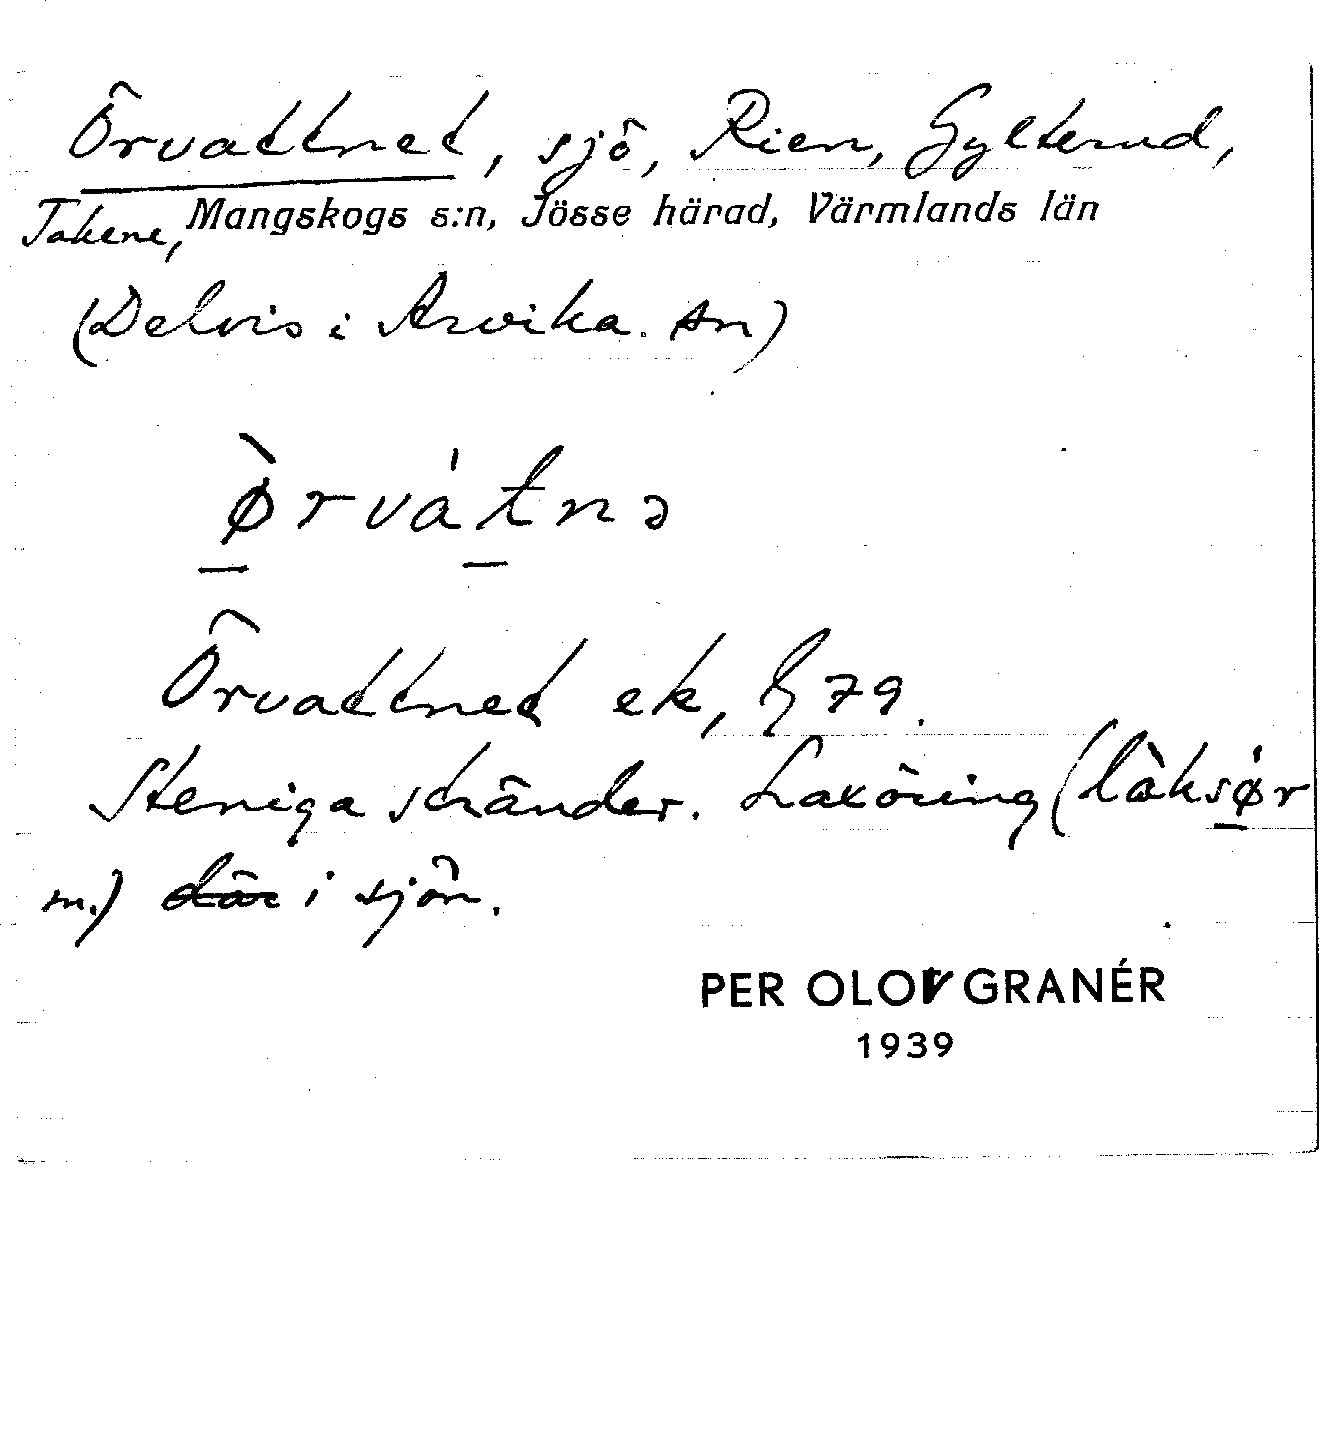 Örvattnet, sjö, Rien, Gylterud,
Takene, Mangskogs s:n, Jösse härad, Värmlands län
(Delvis i Arvika sn)
ø̀rvát̠nə
Örvattnet ek, § 79.
Steniga stränder. Laxöring (làksǿr
m.) ~~där~~ i sjön.
PER OLOV GRANÉR
1939